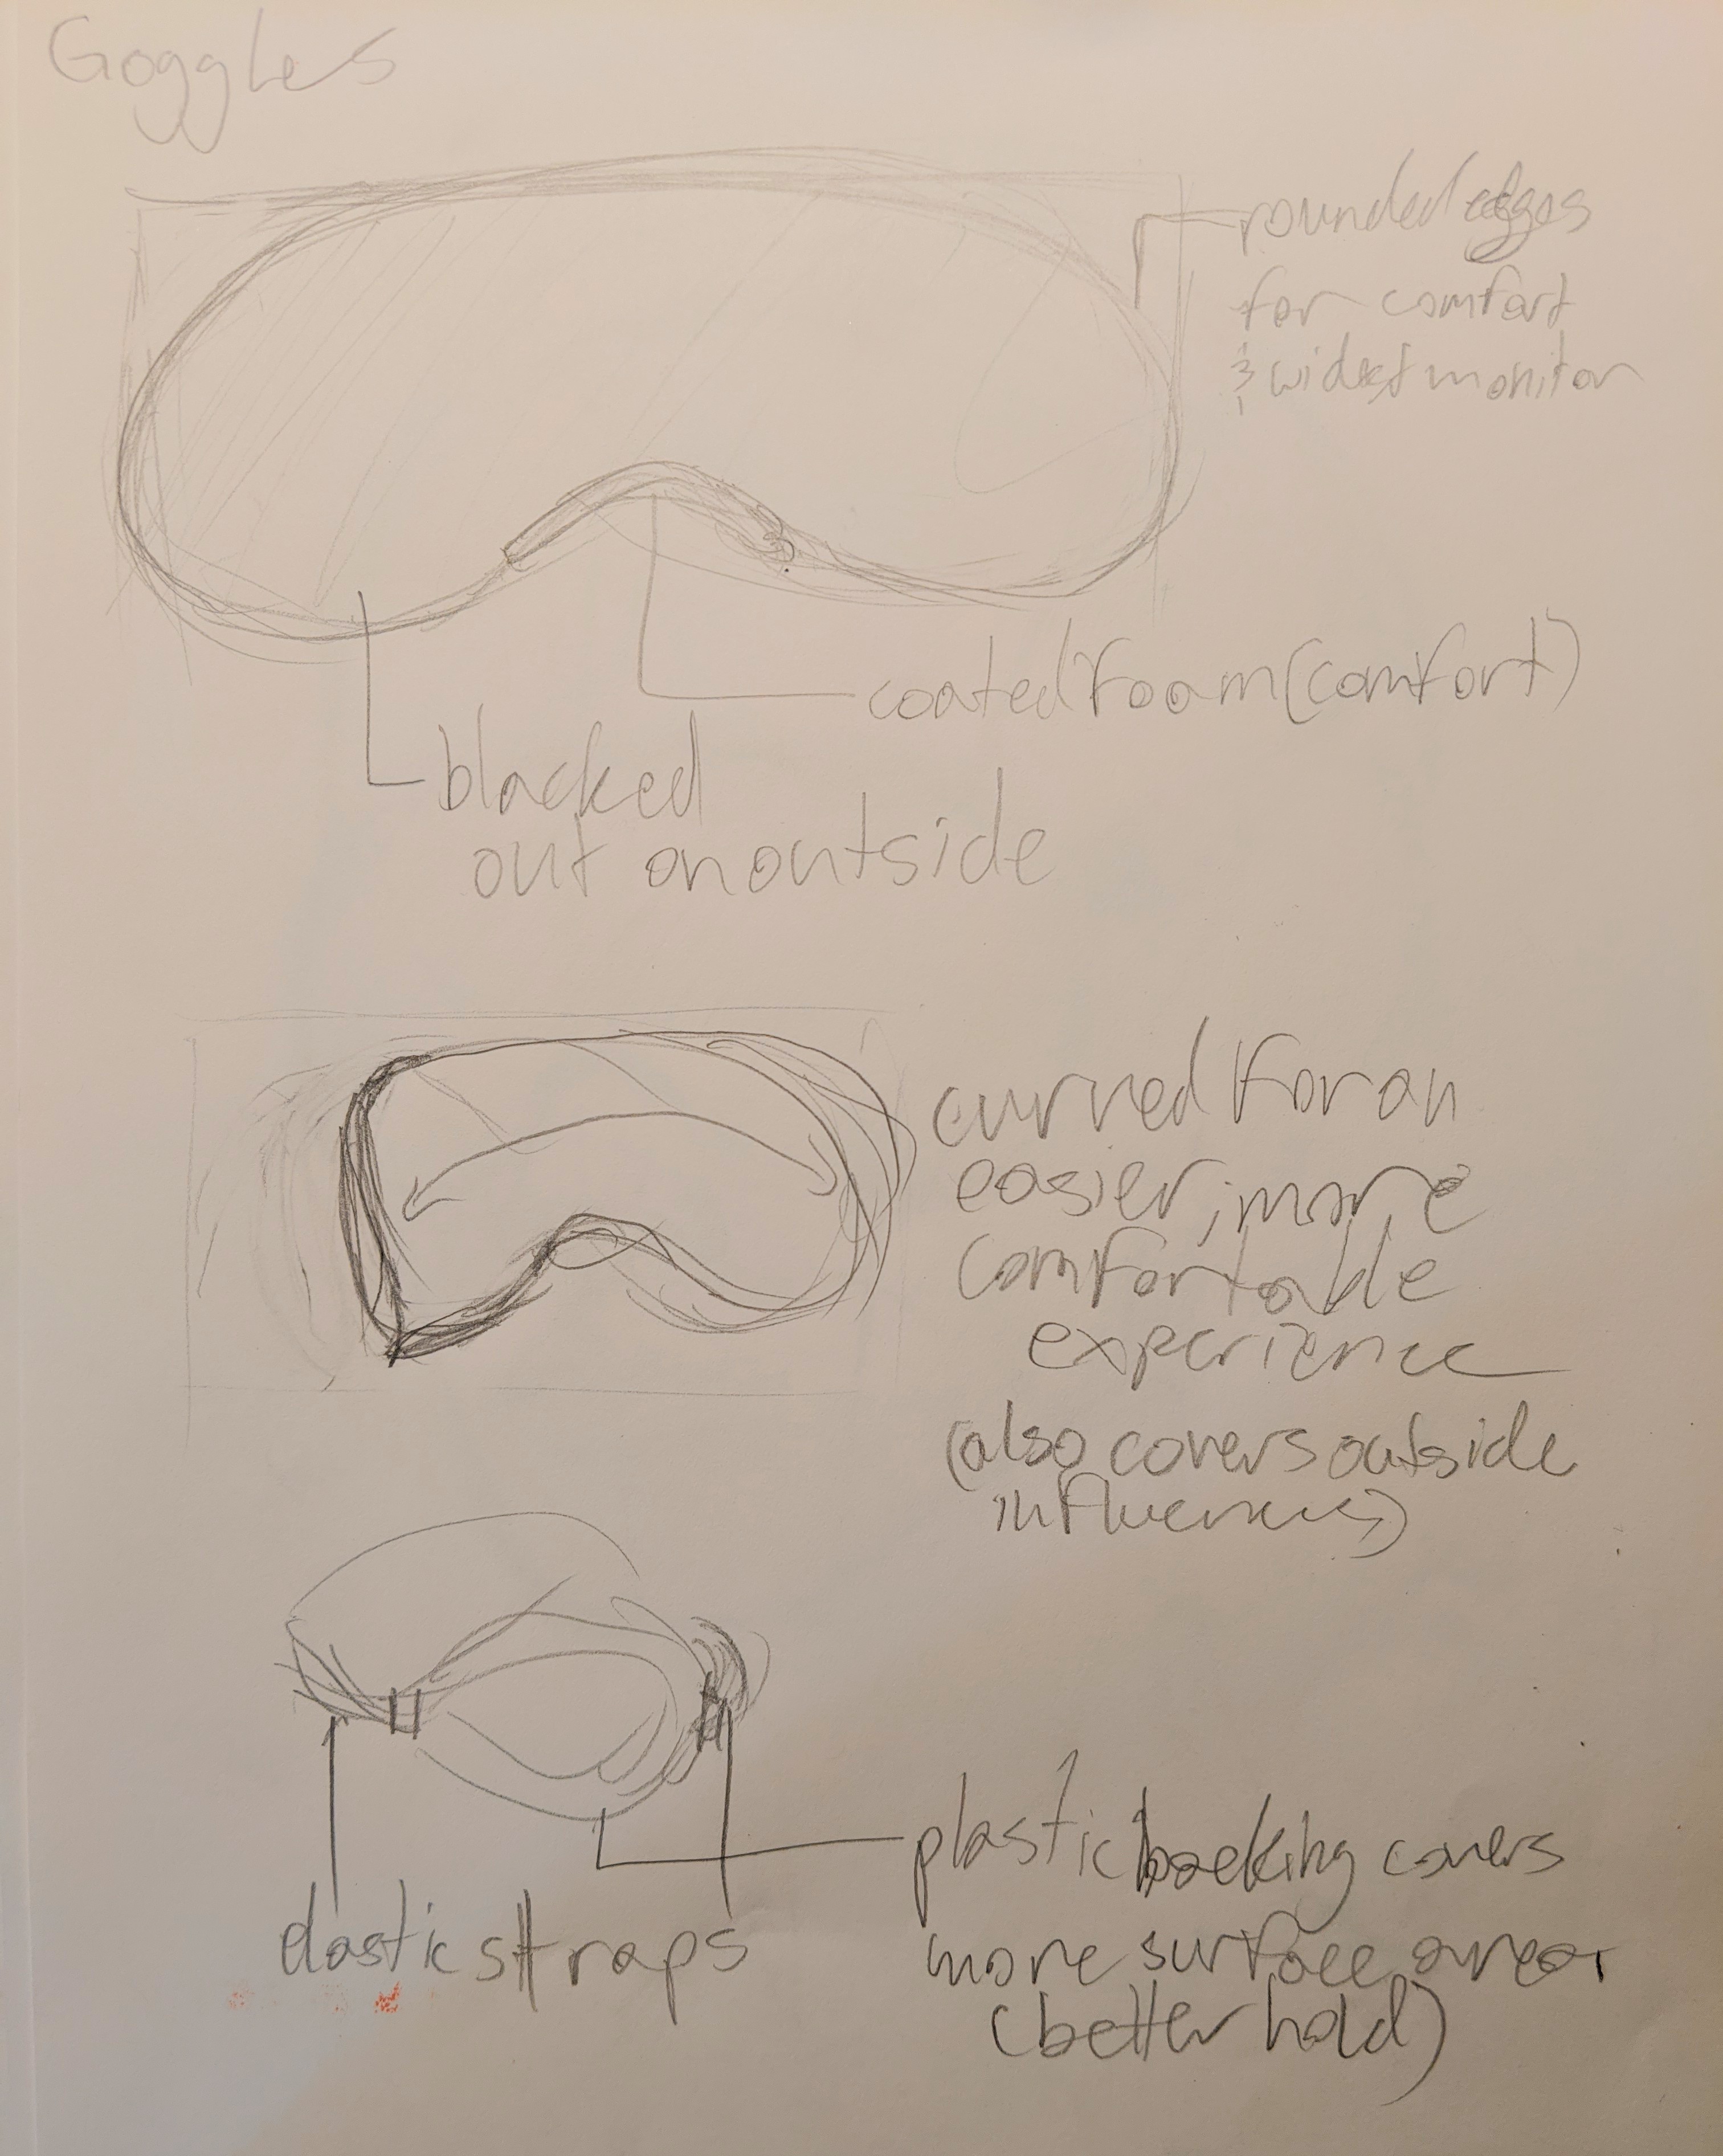 Goggles
rounded edges
for comfort
& widest monitor
coated foam (comfort)
blacked
out on outside
curved for an
easier, more
comfortable
experience
(also covers outside
influences)
plastic backing covers
more surface area
(better hold)
elastic straps